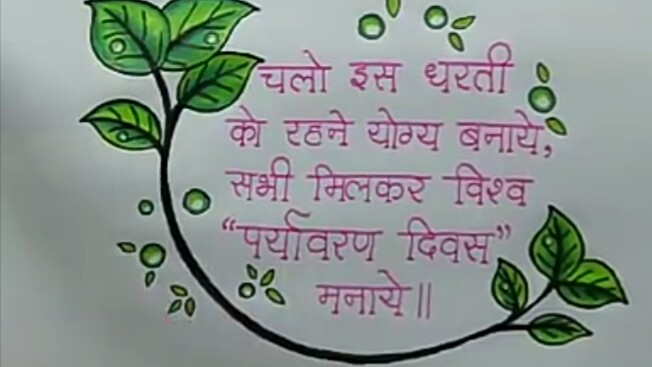 चलो इस धरती
को रहने योग्य बनाये,
सभी मिलकर विश्व
“पर्यावरण दिवस”
मनाये॥